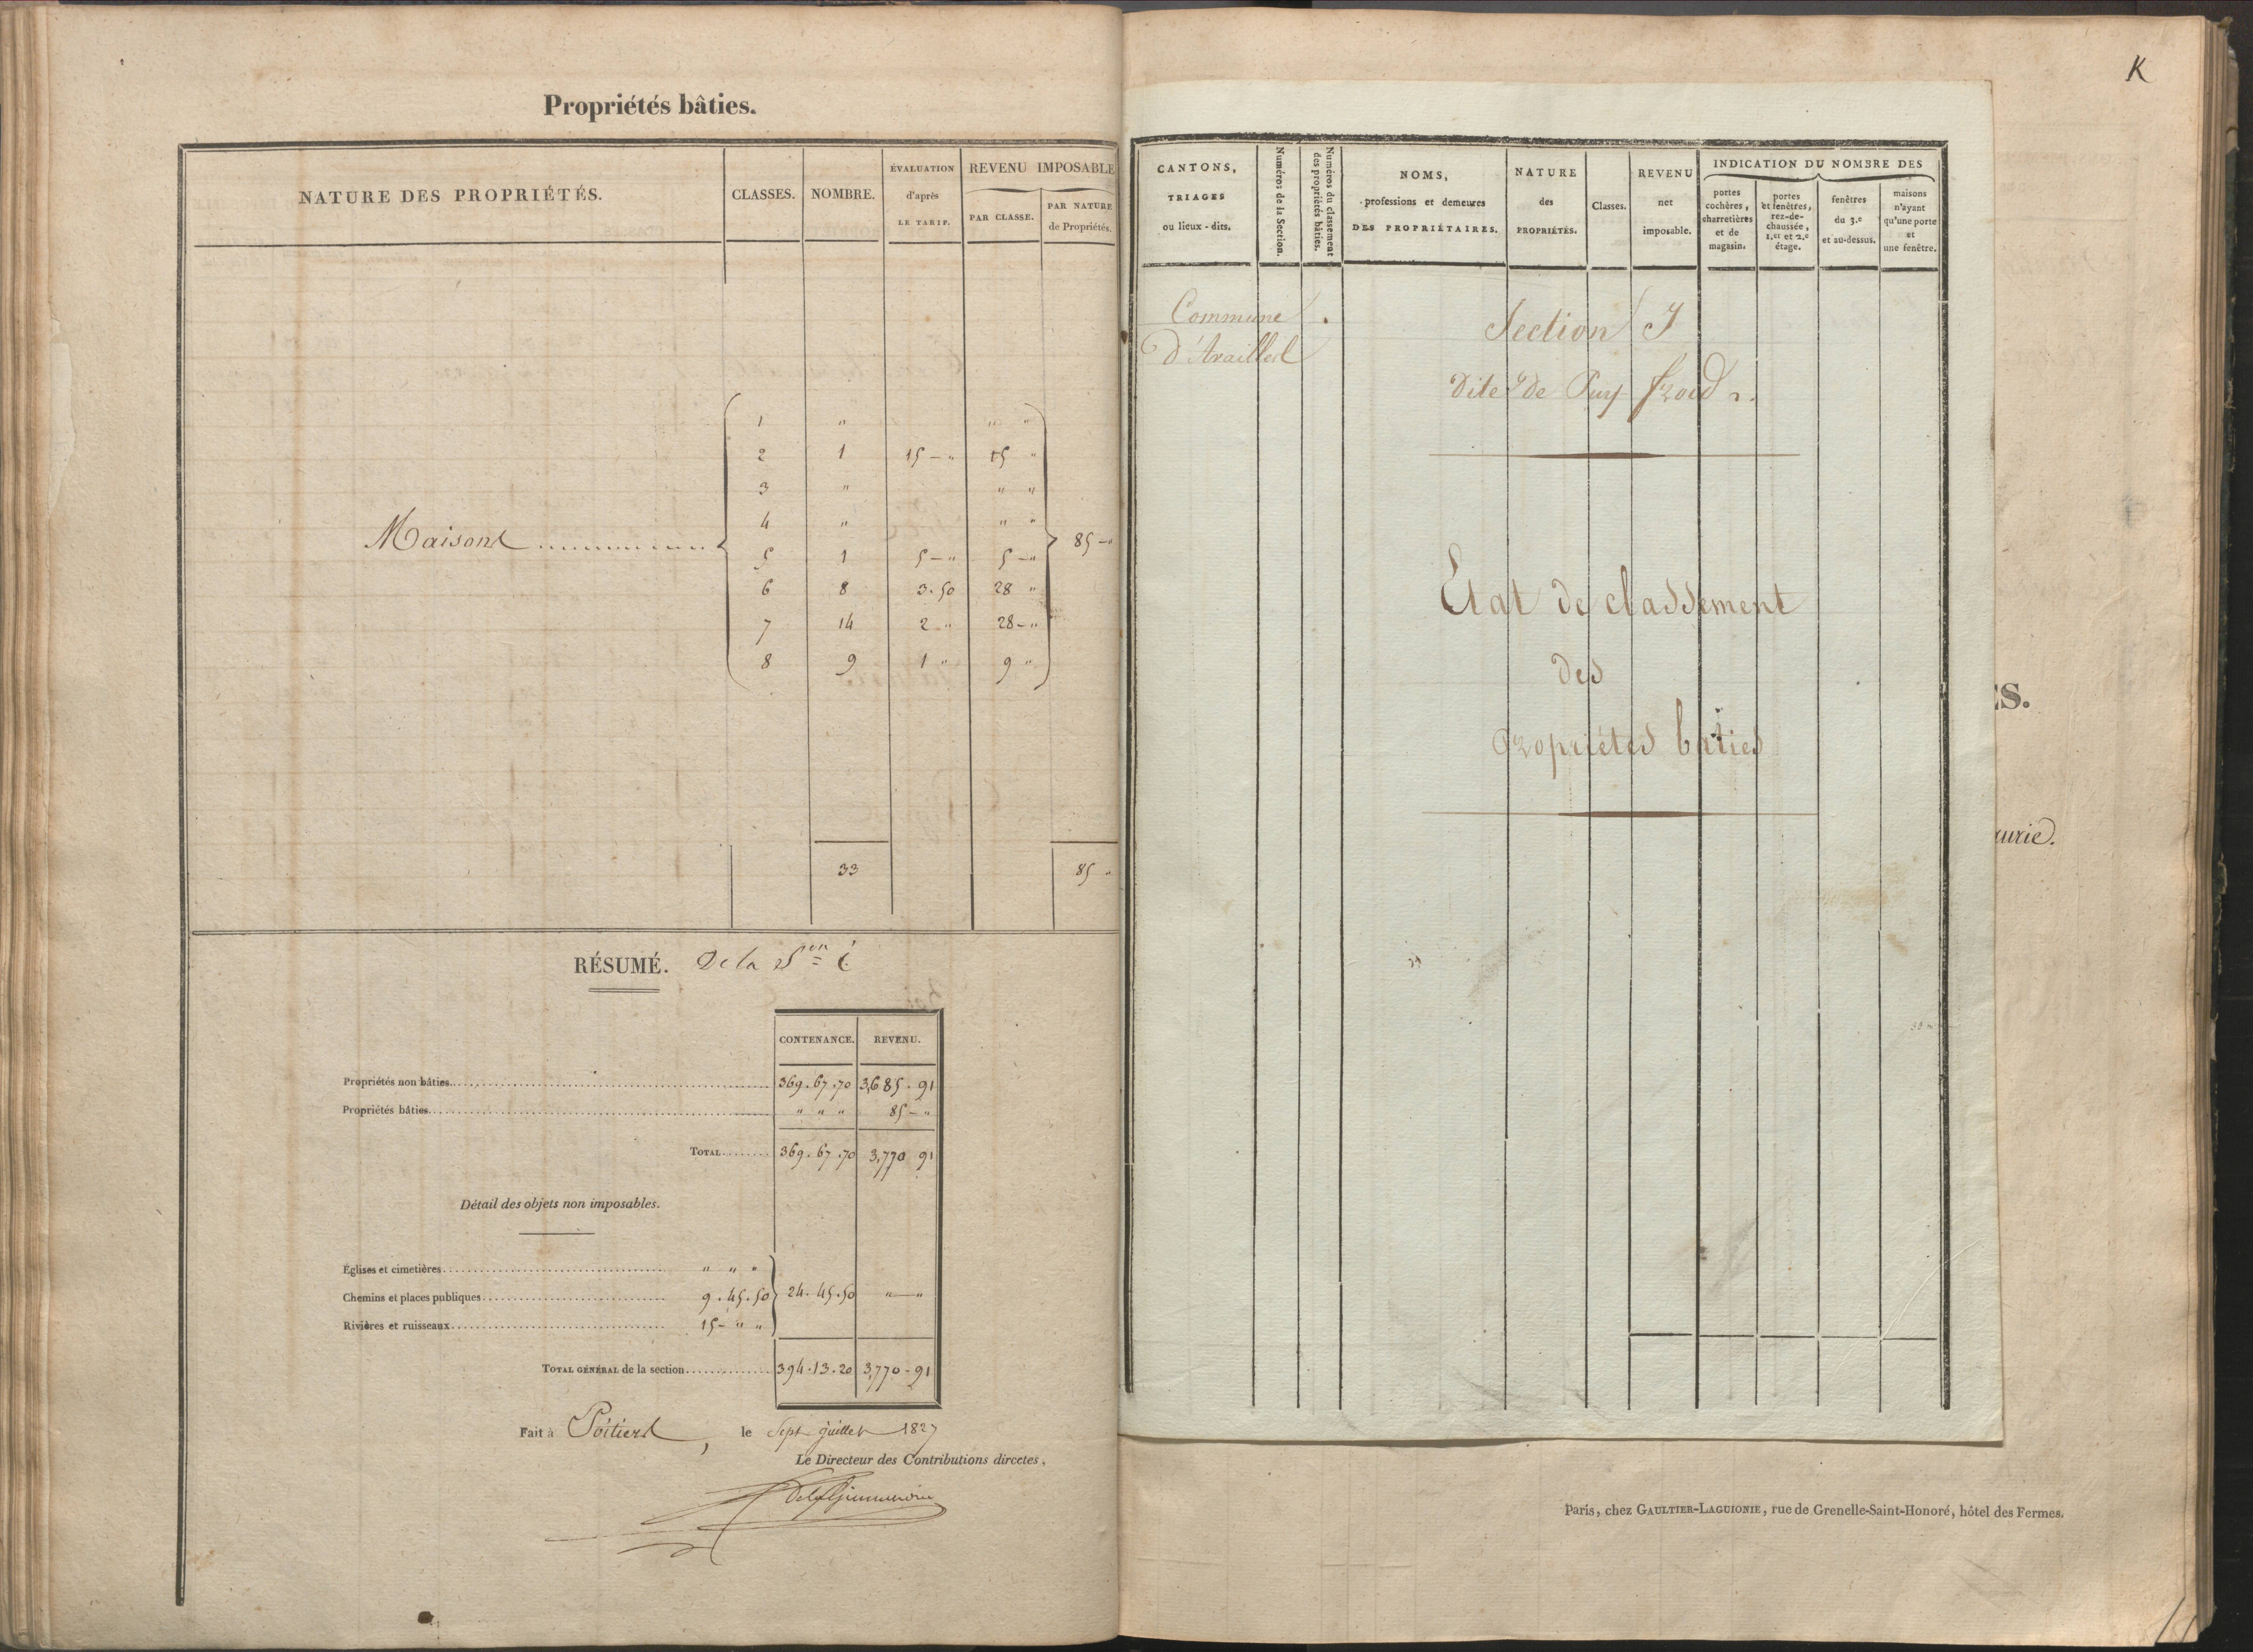 Propriétés bâties.
NATURE DES PROPRIÉTÉS. CLASSES. NOMBRE. ÉVALUATION d'après LE TARIF. REVENU IMPOSABLE PAR CLASSE. PAR NATURE de Propriétés.
1 " " "
2 1 15 – " 15 "
3 " " "
4 " " "
Maisons 85 – "
5 1 5 – " 5 – "
6 8 3.50 28 "
7 14 2 " 28 – "
8 9 1 " 9 "
33 85 "
RÉSUMÉ. De la Son
CONTENANCE. REVENU.
Propriétés non bâties 369.67.70 3,685.91
Propriétés bâties " " " 85 – "
TOTAL 369.67.70 3,770 91
Détail des objets non imposables.
Églises et cimetières " " "
Chemins et places publiques 9.45.50 24.45.50 " – "
Rivières et ruisseaux 15 – " "
TOTAL GÉNÉRAL de la section 394.13.20 3,770-91
Fait à Poitiers, le Sept juillet 1827
Le Directeur des Contributions dircetes,
K
CANTONS, TRIAGES ou lieux-dits.
Numéros de la Section.
Numéros du classement des propriétés bâties.
NOMS, professions et demeures DES PROPRIÉTAIRES.
NATURE des PROPRIÉTÉS.
Classes.
REVENU net imposable.
INDICATION DU NOMBRE DES
portes cochères, charretières et de magasin.
portes et fenêtres, rez-de-chaussée, 1.er et 2.e étage.
fenêtres du 3.e et au-dessus.
maisons n'ayant qu'une porte et une fenêtre.
Commune
d'Availles
Section J
dite de Puy froid
Etat de classement
des
propriétés baties
ES.
urie.
Paris, chez GAULTIER-LAGUIONIE, rue de Grenelle-Saint-Honoré, hôtel des Fermes.